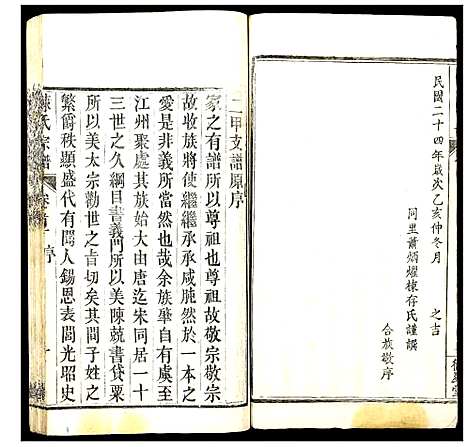 民國二十四年歲次乙亥仲冬月　之吉
同里蕭炳燿棟存氏謹譔
合族敬序
二甲支譜原序
家之有譜所以尊祖也尊祖故敬宗敬宗
故收族將使繼繼承承咸肫然於一本之
愛是非義所當然也哉余族肇自有虞至
江州聚處其族始大由唐迄宋同居一十
三世之久綱目書義門所以美陳兢書貸粟
所以美太宗勸世之旨切矣其間子姓之
繁爵秩顯盛代有聞人錫恩表閭光昭史
陳氏宗譜　卷首　序